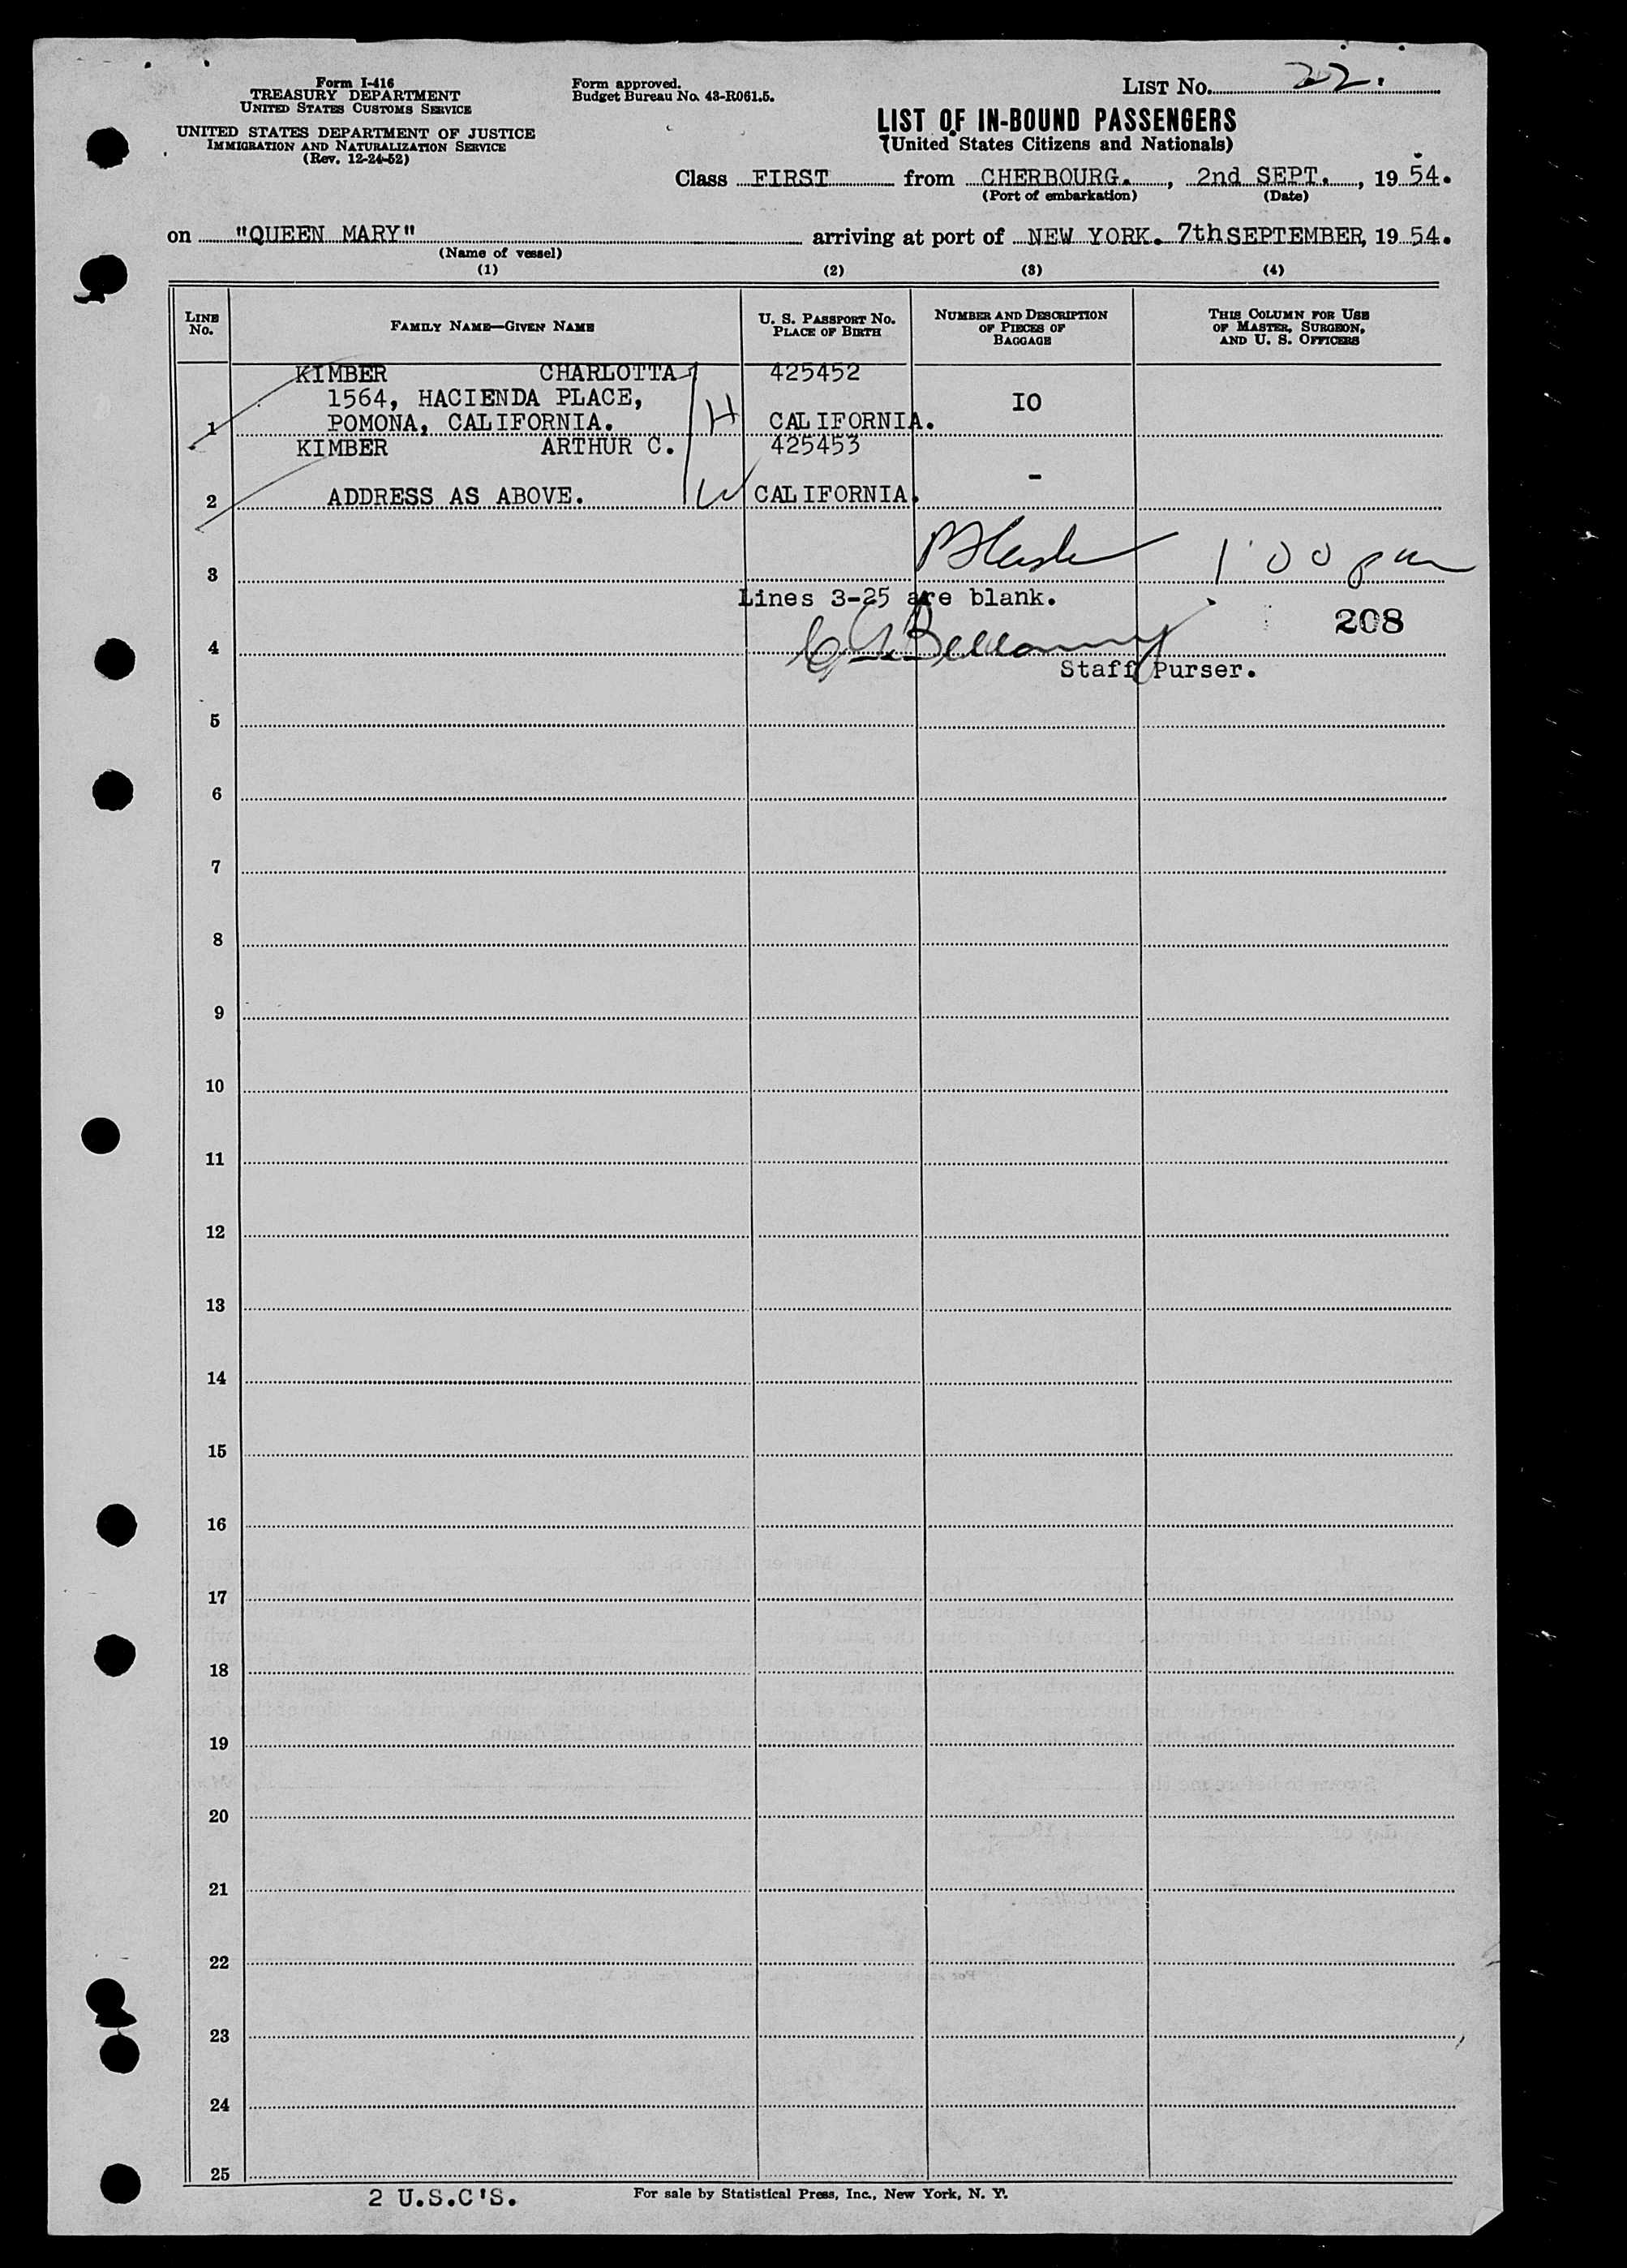 Form I-416
TREASURY DEPARTMENT
UNITED STATES CUSTOMS SERVICE
UNITED STATES DEPARTMENT OF JUSTICE
IMMIGRATION AND NATURALIZATION SERVICE
(Rev. 12-24-52)
Form approved.
Budget Bureau No. 43-R061.5.
LIST No. 22.
LIST OF IN-BOUND PASSENGERS
(United States Citizens and Nationals)
Class FIRST from CHERBOURG. , 2nd SEPT. , 19 54.
(Port of embarkation) (Date)
on "QUEEN MARY" arriving at port of NEW YORK. 7th SEPTEMBER, 19 54.
(Name of vessel)
(1) (2) (3) (4)
LINE No. FAMILY NAME—GIVEN NAME U. S. PASSPORT No. PLACE OF BIRTH NUMBER AND DESCRIPTION OF PIECES OF BAGGAGE THIS COLUMN FOR USE OF MASTER, SURGEON, AND U. S. OFFICERS
KIMBER CHARLOTTA 425452
1564, HACIENDA PLACE, IO
1 POMONA, CALIFORNIA. H CALIFORNIA.
KIMBER ARTHUR C. 425453
-
2 ADDRESS AS ABOVE. W CALIFORNIA.
3 1:00 pm
Lines 3-25 are blank.
208
4 Bellamy
Staff Purser.
5
6
7
8
9
10
11
12
13
14
15
16
17
18
19
20
21
22
23
24
25
2 U.S.C'S. For sale by Statistical Press, Inc., New York, N. Y.